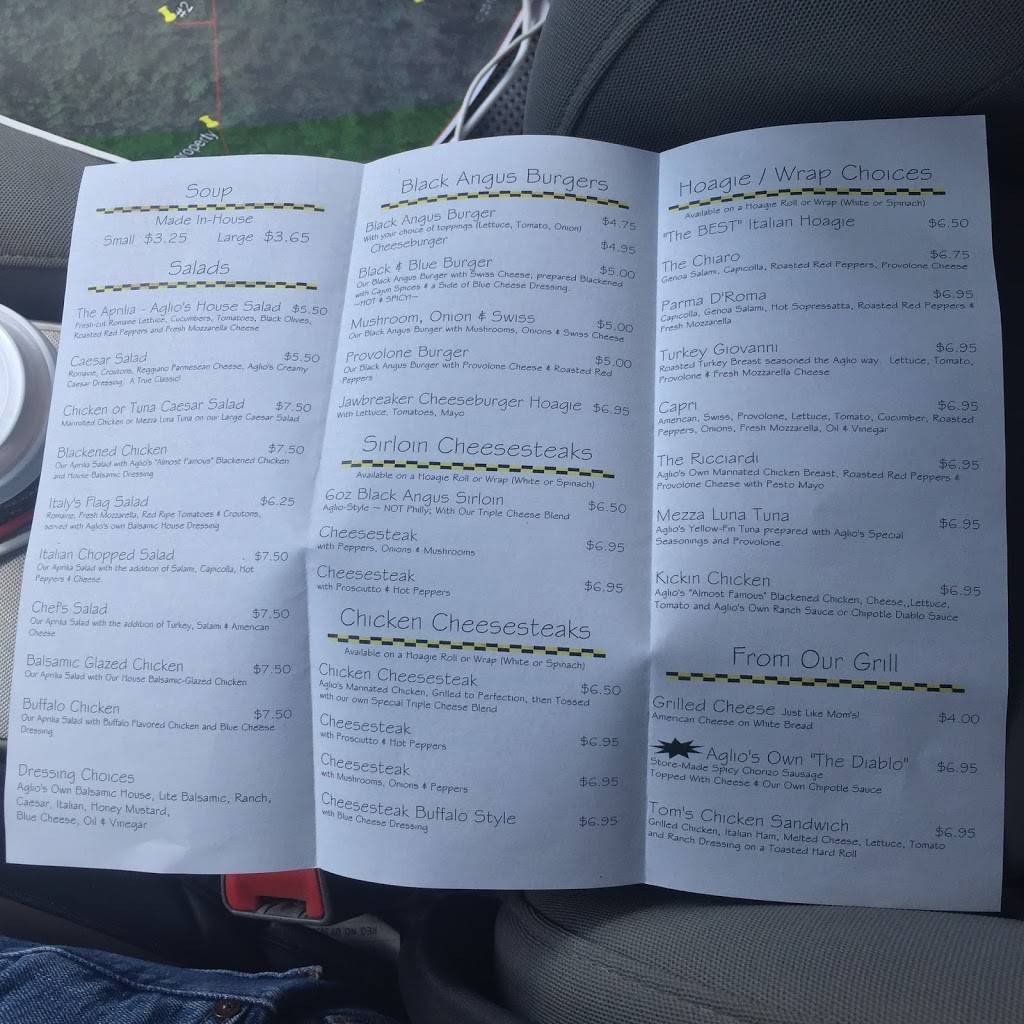 #2
property
Soup
Made In-House
Small $3.25 Large $3.65
Salads
The Aprilia - Aglio's House Salad $5.50
Fresh-cut Romaine Lettuce, Cucumbers, Tomatoes, Black Olives,
Roasted Red Peppers and Fresh Mozzarella Cheese
Caesar Salad $5.50
Romaine, Croutons, Reggiano Parmesean Cheese, Aglio's Creamy
Caesar Dressing. A True Classic!
Chicken or Tuna Caesar Salad $7.50
Marinated Chicken or Mezza Luna Tuna on our Large Caesar Salad
Blackened Chicken $7.50
Our Aprilia Salad with Aglio's "Almost Famous" Blackened Chicken
and House Balsamic Dressing
Italy's Flag Salad $6.25
Romaine, Fresh Mozzarella, Red Ripe Tomatoes & Croutons,
served with Aglio's own Balsamic House Dressing
Italian Chopped Salad $7.50
Our Aprilia Salad with the addition of Salami, Capicolla, Hot
Peppers & Cheese.
Chef's Salad $7.50
Our Aprilia Salad with the addition of Turkey, Salami & American
Cheese
Balsamic Glazed Chicken $7.50
Our Aprilia Salad with Our House Balsamic-Glazed Chicken
Buffalo Chicken $7.50
Our Aprilia Salad with Buffalo Flavored Chicken and Blue Cheese
Dressing
Dressing Choices
Aglio's Own Balsamic House, Lite Balsamic, Ranch,
Caesar, Italian, Honey Mustard,
Blue Cheese, Oil & Vinegar
Black Angus Burgers
Black Angus Burger $4.75
With your choice of toppings (Lettuce, Tomato, Onion)
Cheeseburger $4.95
Black & Blue Burger $5.00
Our Black Angus Burger with Swiss Cheese, prepared Blackened
with Cajun Spices & a Side of Blue Cheese Dressing.
~HOT & SPICY!~
Mushroom, Onion & Swiss $5.00
Our Black Angus Burger with Mushrooms, Onions & Swiss Cheese
Provolone Burger $5.00
Our Black Angus Burger with Provolone Cheese & Roasted Red
Peppers
Jawbreaker Cheeseburger Hoagie $6.95
With Lettuce, Tomatoes, Mayo
Sirloin Cheesesteaks
Available on a Hoagie Roll or Wrap (White or Spinach)
6oz Black Angus Sirloin $6.50
Aglio-Style ~ NOT Philly; With Our Triple Cheese Blend
Cheesesteak $6.95
with Peppers, Onions & Mushrooms
Cheesesteak $6.95
with Prosciutto & Hot Peppers
Chicken Cheesesteaks
Available on a Hoagie Roll or Wrap (White or Spinach)
Chicken Cheesesteak $6.50
Aglio's Marinated Chicken, Grilled to Perfection, then Tossed
with our own Special Triple Cheese Blend
Cheesesteak $6.95
with Prosciutto & Hot Peppers
Cheesesteak $6.95
with Mushrooms, Onions & Peppers
Cheesesteak Buffalo Style $6.95
with Blue Cheese Dressing
Hoagie / Wrap Choices
Available on a Hoagie Roll or Wrap (White or Spinach)
"The BEST" Italian Hoagie $6.50
The Chiaro $6.75
Genoa Salami, Capicolla, Roasted Red Peppers, Provolone Cheese
Parma D'Roma $6.95
Capicolla, Genoa Salami, Hot Sopressatta, Roasted Red Peppers &
Fresh Mozzarella
Turkey Giovanni $6.95
Roasted Turkey Breast seasoned the Aglio way. Lettuce, Tomato,
Provolone & Fresh Mozzarella Cheese
Capri $6.95
American, Swiss, Provolone, Lettuce, Tomato, Cucumber, Roasted
Peppers, Onions, Fresh Mozzarella, Oil & Vinegar
The Ricciardi $6.95
Aglio's Own Marinated Chicken Breast, Roasted Red Peppers &
Provolone Cheese with Pesto Mayo
Mezza Luna Tuna $6.95
Aglio's Yellow-Fin Tuna prepared with Aglio's Special
Seasonings and Provolone.
Kickin Chicken $6.95
Aglio's "Almost Famous" Blackened Chicken, Cheese,,Lettuce,
Tomato and Aglio's Own Ranch Sauce or Chipotle Diablo Sauce
From Our Grill
Grilled Cheese Just Like Mom's! $4.00
American Cheese on White Bread
Aglio's Own "The Diablo" $6.95
Store-Made Spicy Chorizo Sausage
Topped With Cheese & Our Own Chipotle Sauce
Tom's Chicken Sandwich $6.95
Grilled Chicken, Italian Ham, Melted Cheese, Lettuce, Tomato
and Ranch Dressing on a Toasted Hard Roll